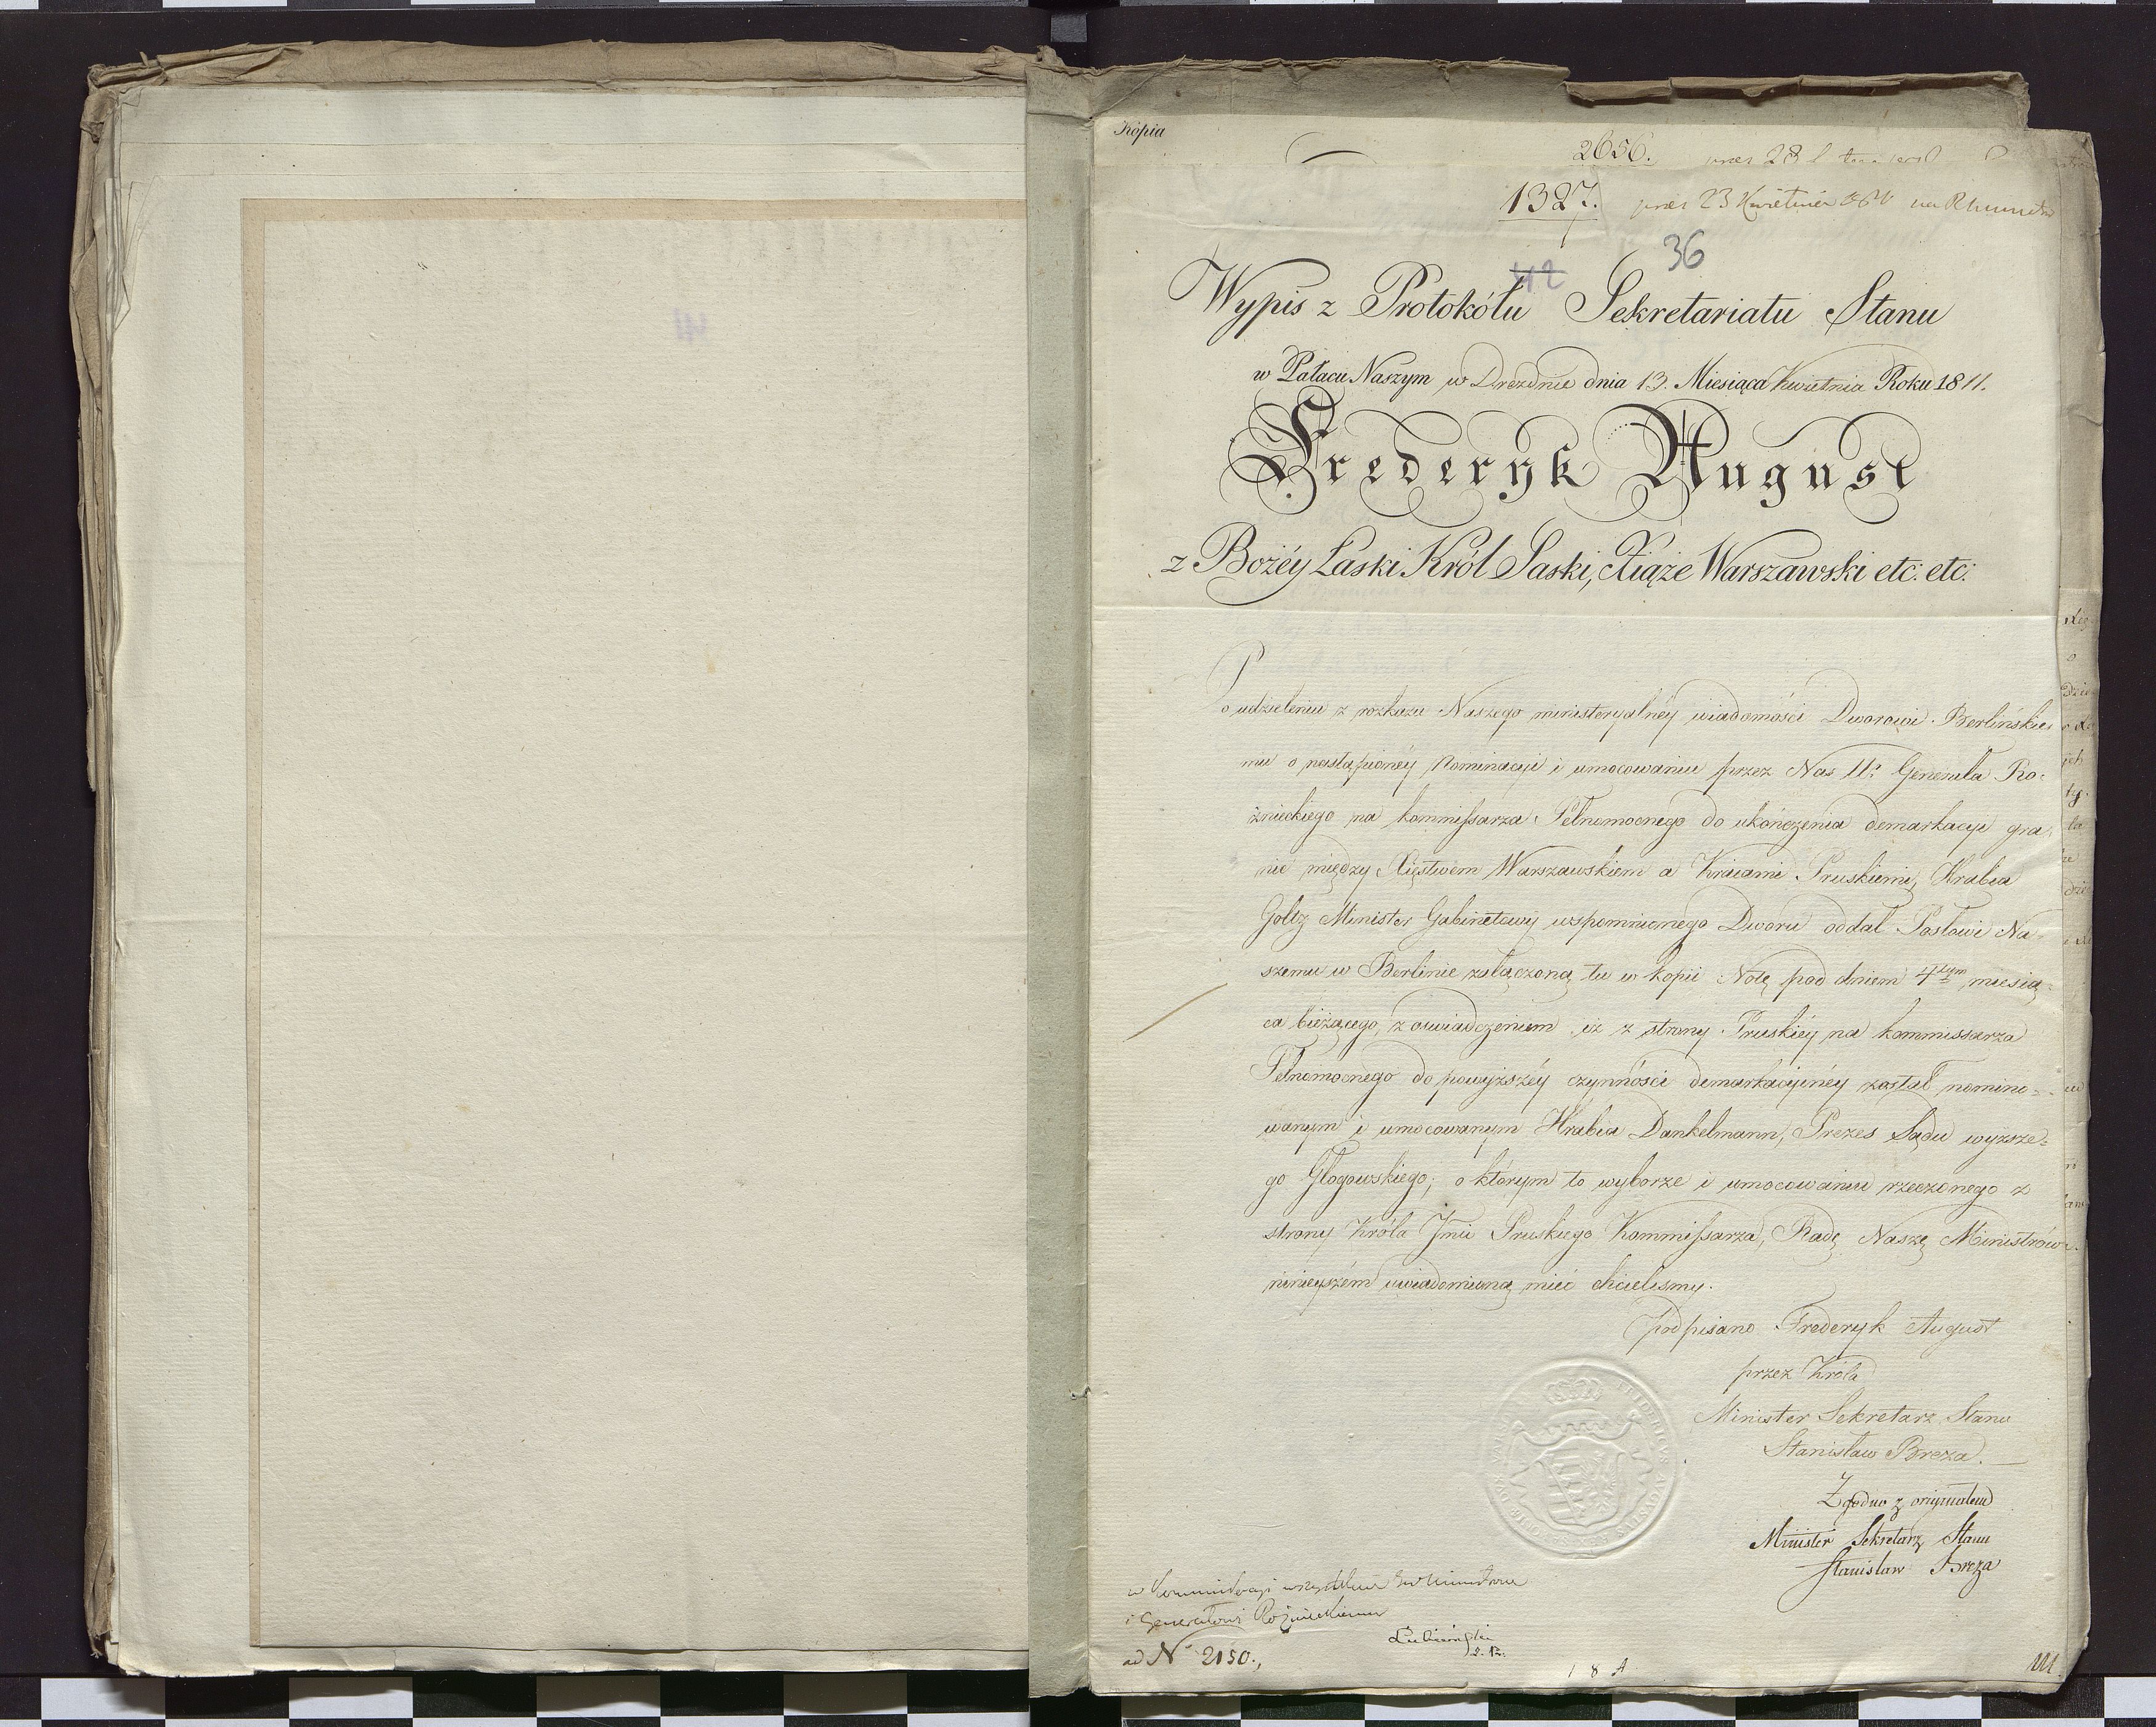 Kopia
2656.
1327. praes 23 Kwietnia
36
42
Wypis z Protokółu Sekretariatu Stanu
w Pałacu Naszym w Dreźnie dnia 13. Miesiąca Kwietnia Roku 1811.
Frederyk August
z Bożéy Łaski Król Saski, Xiąże Warszawski etc: etc:
Po udzieleniu z rozkazu Naszego ministeryalnéy wiadomości Dworowi Berlińskie,
mu o nastąpionéy Nominacyi i umocowaniu przez Nas Ur. Generała Ro:
żnieckiego na kommissarza Pełnomocnego do ukończenia demarkacyi gra,
nic między Xięstwem Warszawskiem a Kraiami Pruskiemi, Hrabia
Goltz Minister Gabinetowy wspomnionego Dworu oddał Posłowi Na-
szemu w Berlinie załączoną tu w kopii Notę pod dniem 4tym miesią-
ca bieżącego, z oświadczeniem iż z strony Pruskiéy na kommissarza
Pełnomocnego do powyższéy czynności demarkacyinéy został nomino=
wanym i umocowanym Hrabia Dankelmann, Prezes Sądu wyższe=
go Głogowskiego; o którym to wyborze i umocowaniu rzeczonego z
strony Króla Jmci Pruskiego Kommissarza, Radę Naszę Ministrów
ninieyszém uwiadomioną mieć chcieliśmy.
podpisano Frederyk August
przez Króla
Minister Sekretarz Stanu
Stanisław Breza.
Zgodno z oryginałem
Minister Sekretarz Stanu
Stanisław Breza
i Generałowi Rożnieckiemu
Łubieński
ad N 2150.,